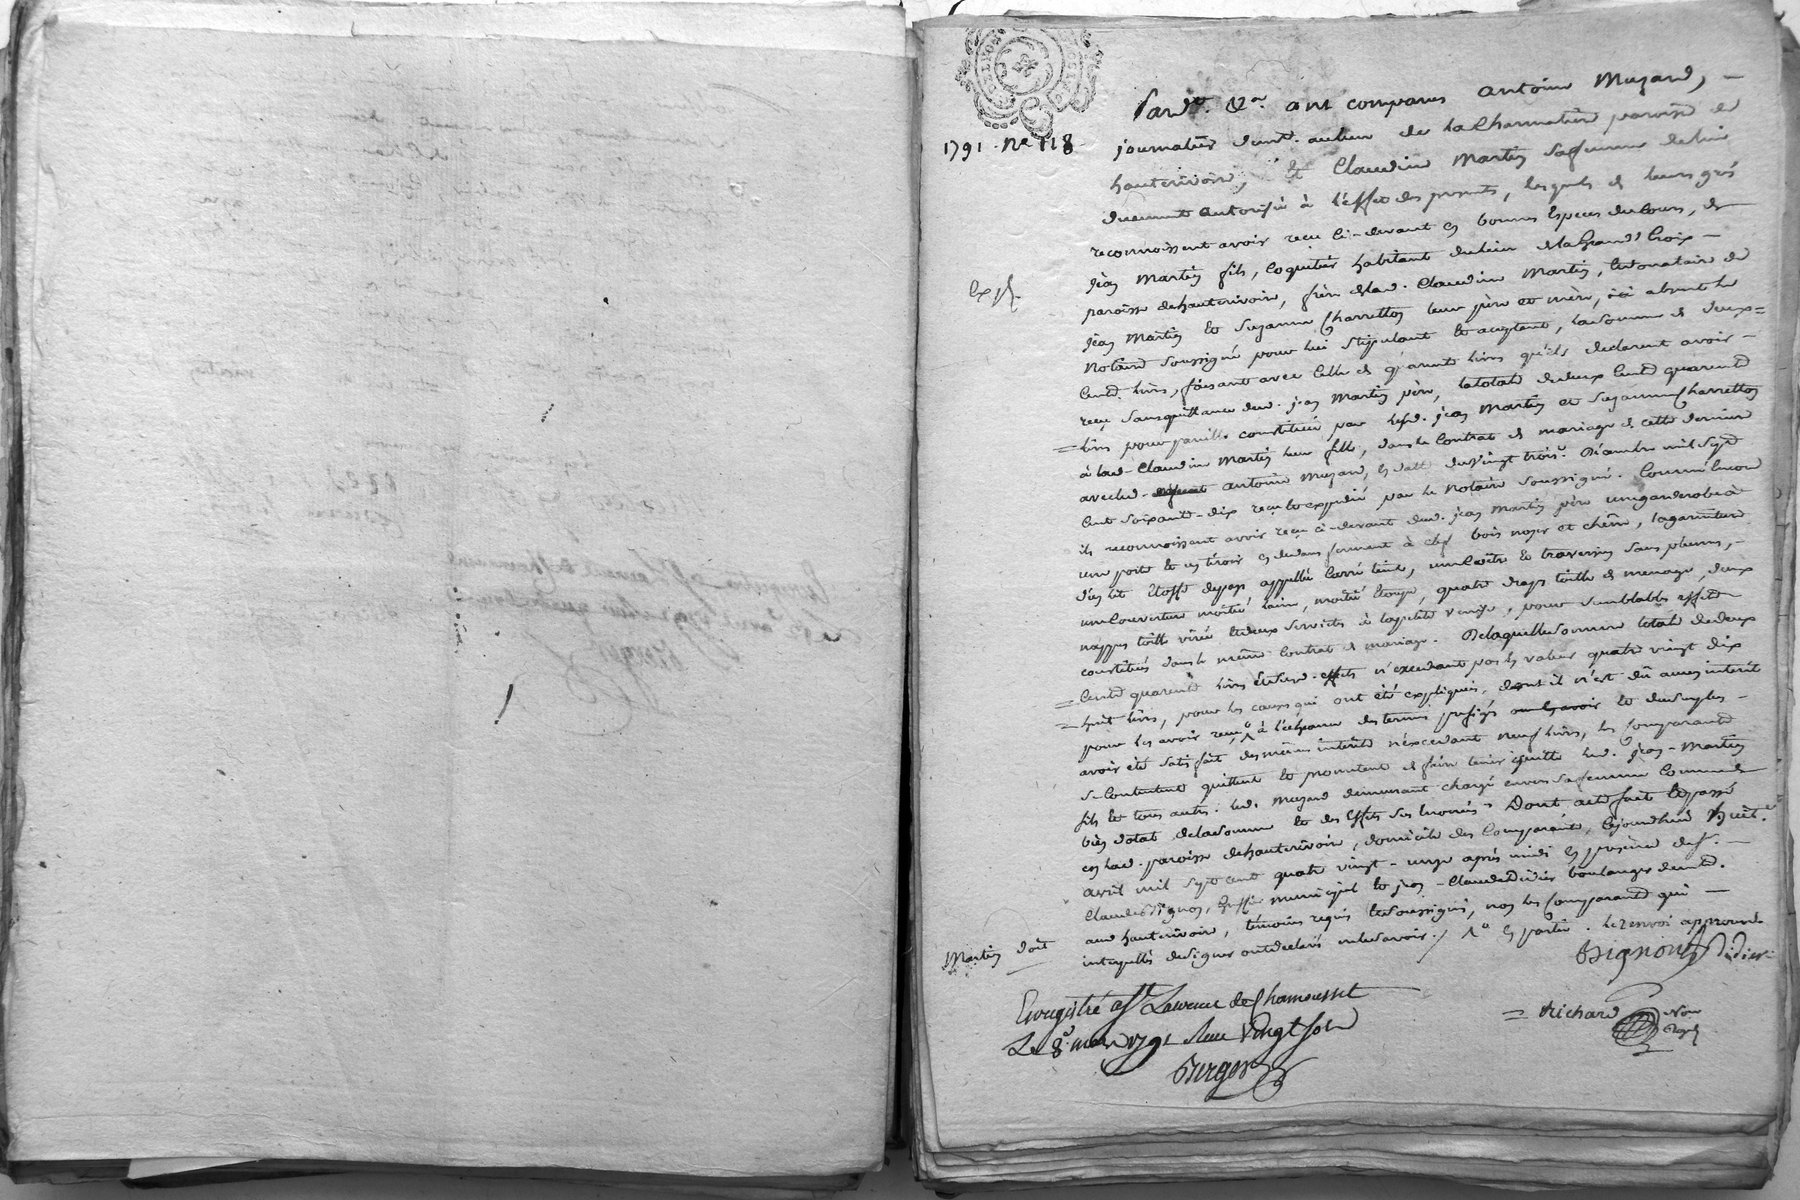 1791. Ne 118
Pard.t &a. ont comparu antoine Muzard, —
journalier demt. au lieu de la Charmatiere paroisse de
hauterivoire, Et Claudine Martin sa femme de lui
duement autorisée à l'effet des presentes, lesquels de leurs grés
reconnoissent avoir reçu ci-devant en bonnes Especes du Cours, de
jean Martin fils, Coquetier habitant du lieu de la Grand Croix —
Exp.
paroisse de hauterivoire, frere de lad. Claudine Martin, donataire de
jean Martin et Suzanne Charretton leur père et mère, ici absent le
Notaire soussigné pour lui stipulant et acceptant, la somme de deux =
Cents livres, faisant avec celle de quarante livres qu'ils declarent avoir —
reçu sans quittance dud. jean Martin père, la totale de deux Cents quarante
= livres pour pareille constituée par lesd. jean Martin et Suzanne Charretton
à lad. Claudine Martin leur fille, dans le Contrat de mariage de cette derniere
avec led. antoine Muzard, en datte du Vingt trois Xcembre mil sept
Cent soixante-dix reçu et expedié par le Notaire soussigné. Comme Encore
ils reconnoissent avoir reçu ci-devant dud. jean Martin père une garderobe à
une porte et un tiroir en dedans fermant à clef bois noyer et chêne, la garniture
d'un lit Etoffe du pays appellée Carré teint, un Coître et traversin sans plumes, —
une Couverture moitié laine, moitié Etoupe, quatre draps toille de menage, deux
nappes toille virée et deux serviettes à la petite Venise, pour semblables effets
constitués dans le même Contrat de mariage. De laquelle somme totale de deux
= Cents quarante livres et desd. effets n'excedant pas la valeur quatre vingt dix
= huit livres, pour les causes qui ont été expliquées, dont il n'est dû aucun interêt
pour les avoir reçu à l'échéance des termes prefigés et du surplus —
avoir été satisfait des mêmes interêts n'excedant neuf livres, les Comparants
se Contentent quittent et promettent de faire tenir quitte led. jean-Martin
fils et tous autres: led. Muzard demeurant chargé envers sa femme Comme de
bien dotal de la somme et des Effets sus enoncés. Dont acte fait et passé
en lad. paroisse de hauterivoire, domicile des Comparants, cejourdhui huit
avril mil sept cent quatre vingt-onze après midi en presence de s.r —
Claude Bignon, Greffier municipal et jean-Claude Didier boulanger demt.
aud hauterivoire, témoins requis et soussignés, non les Comparants qui —
interpellés de signer ont declaré ne le savoir. / en partie. le renvoi approuvé
Martin doit
Bignon Didier
= Richard Not. Royal
Enregistré a St Laurent de Chamousset
Le 8 mai 1791 Reçu Vingt sols
Berger